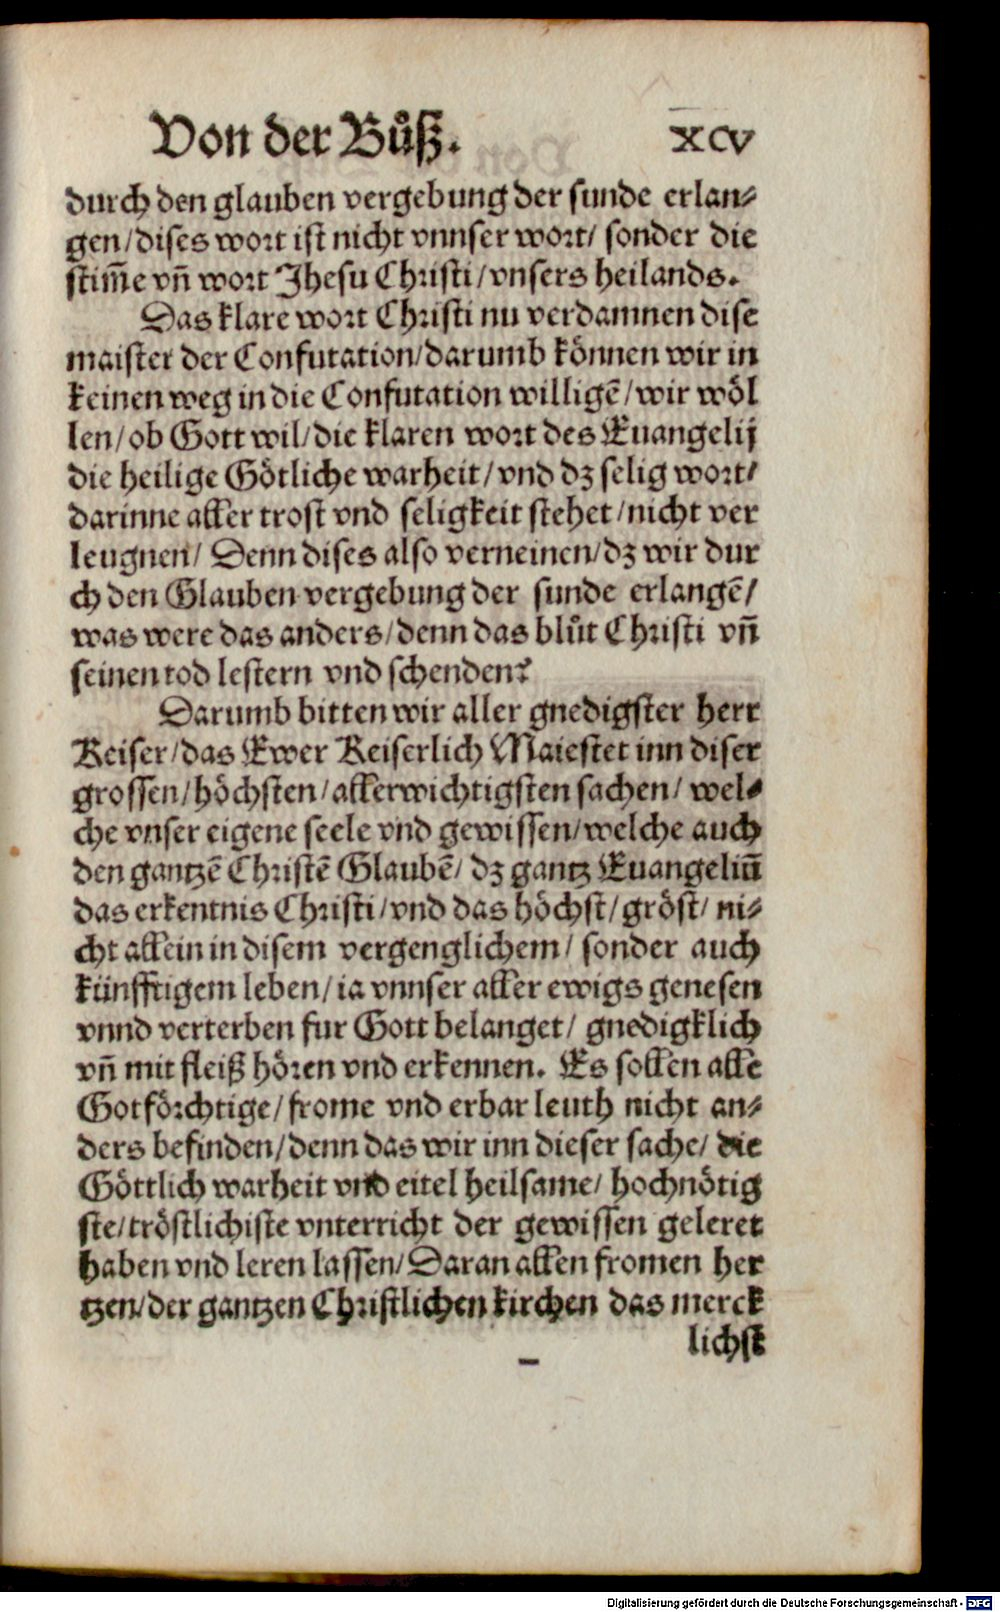 Von der Bůß. XCV
durch den glauben vergebung der sunde erlan⸗
gen/dises wort ist nicht vnnser wort/ sonder die
stim̃e vñ wort Jhesu Christi/vnsers heilands.
Das klare wort Christi nu verdamnen dise
maister der Confutation/darumb können wir in
keinen weg in die Confutation willigẽ/wir wöl
len/ob Gott wil/die klaren wort des Euangelij
die heilige Götliche warheit/vnd dz selig wort/
darinne aller trost vnd seligkeit stehet/nicht ver
leugnen/ Denn dises also verneinen/dz wir dur
ch den Glauben vergebung der sunde erlangẽ/
was were das anders/denn das blůt Christi vñ
seinen tod lestern vnd schenden?
Darumb bitten wir aller gnedigster herr
Keiser/das Ewer Keiserlich Maiestet inn diser
grossen/höchsten/allerwichtigsten sachen/ wel⸗
che vnser eigene seele vnd gewissen/welche auch
den gantzẽ Christẽ Glaubẽ/ dz gantz Euangeliũ
das erkentnis Christi/vnd das höchst/gröst/ ni⸗
cht allein in disem vergenglichem/ sonder auch
künfftigem leben/ia vnnser aller ewigs genesen
vnnd verterben fur Gott belanget/ gnedigklich
vñ mit fleiß hören vnd erkennen. Es sollen alle
Gotförchtige/frome vnd erbar leuth nicht an⸗
ders befinden/denn das wir inn dieser sache/ die
Göttlich warheit vnd eitel heilsame/ hochnötig
ste/tröstlichiste vnterricht der gewissen geleret
haben vnd leren lassen/Daran allen fromen her
tzen/der gantzen Christlichen kirchen das merck
lichst
Digitalisierung gefördert durch die Deutsche Forschungsgemeinschaft - DFG